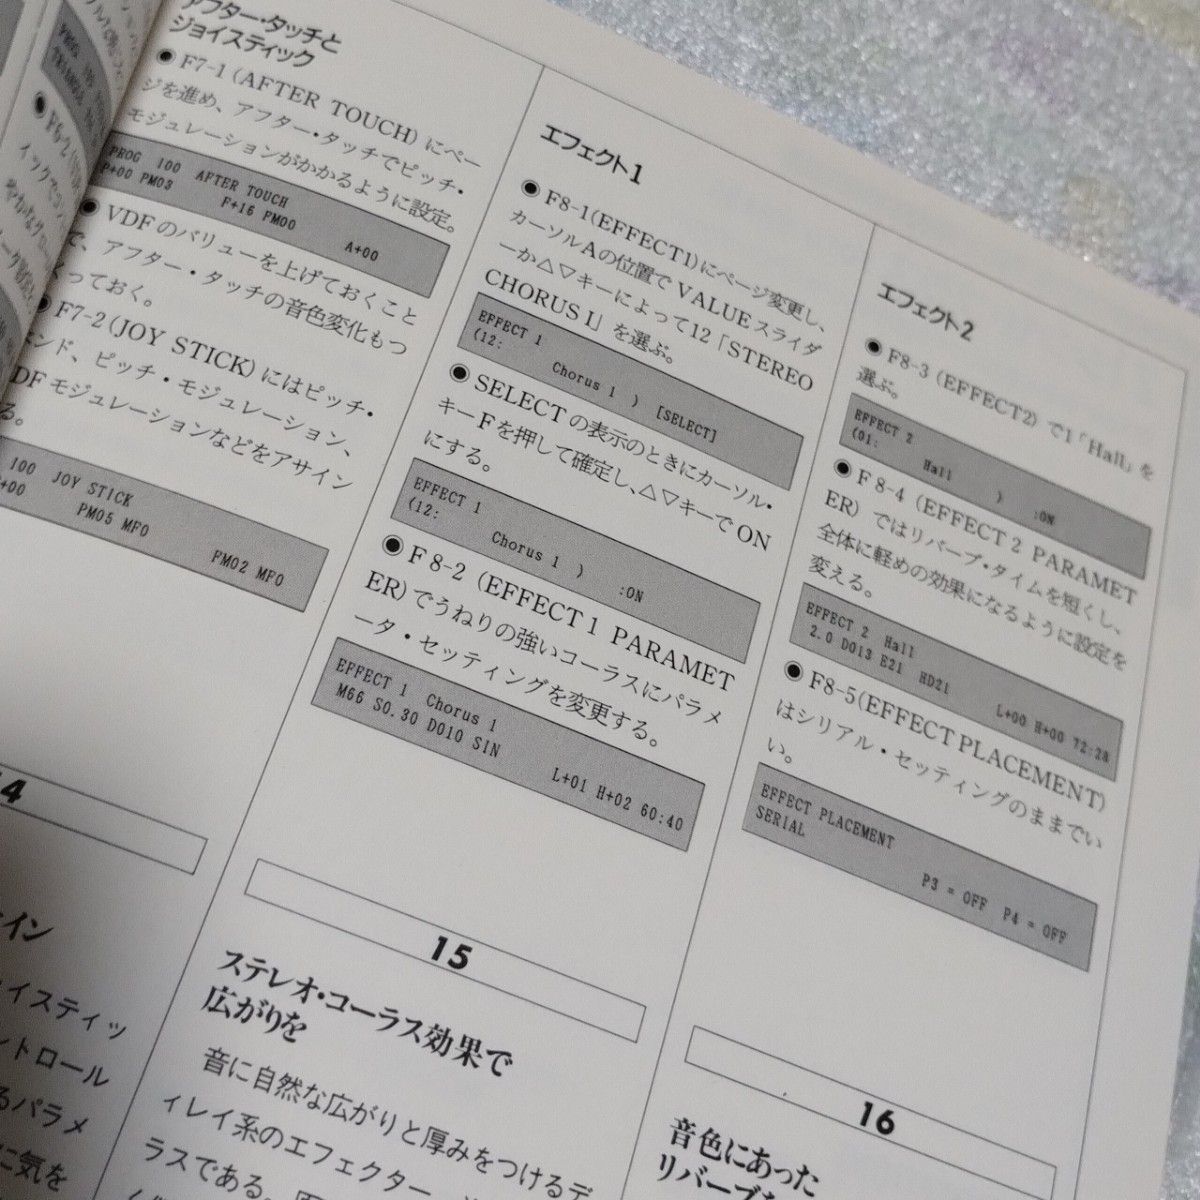 アフター・タッチと
ジョイスティック
● F7-1 (AFTER TOUCH) にペー
ジを進め、アフター・タッチでピッチ・
モジュレーションがかかるように設定。
PROG 100 AFTER TOUCH
P+00 PM03 F+16 FM00 A+00
● VDFのバリューを上げておくこと
で、アフター・タッチの音色変化もつ
くっておく。
● F7-2 (JOY STICK) にはピッチ・
ベンド、ピッチ・モジュレーション、
DFモジュレーションなどをアサイン
る。
100 JOY STICK
+00 PM05 MF0 FM02 MF0
14
イン
イスティッ
ントロール
るパラメ
に気を
エフェクト1
● F8-1(EFFECT1)にページ変更し、
カーソルAの位置でVALUEスライダ
ーか△▽キーによって12「STEREO
CHORUS I」を選ぶ。
EFFECT 1
(12: Chorus 1 ) [SELECT]
● SELECTの表示のときにカーソル・
キーFを押して確定し、△▽キーでON
にする。
EFFECT 1
(12: Chorus 1 ) :ON
● F8-2 (EFFECT 1 PARAMET
ER)でうねりの強いコーラスにパラメ
ータ・セッティングを変更する。
EFFECT 1 Chorus 1
M66 S0.30 D010 SIN L+01 H+02 60:40
15
ステレオ・コーラス効果で
広がりを
音に自然な広がりと厚みをつけるデ
ィレイ系のエフェクター
ラスである。
エフェクト2
● F8-3 (EFFECT2) で1「Hall」を
選ぶ。
EFFECT 2
(01: Hall ) :ON
● F8-4 (EFFECT 2 PARAMET
ER) ではリバーブ・タイムを短くし、
全体に軽めの効果になるように設定を
変える。
EFFECT 2 Hall
2.0 D013 E21 HD21 L+00 H+00 72:28
● F8-5(EFFECT PLACEMENT)
はシリアル・セッティングのままでい
い。
EFFECT PLACEMENT
SERIAL P3 = OFF P4 = OFF
16
音色にあった
リバーブ